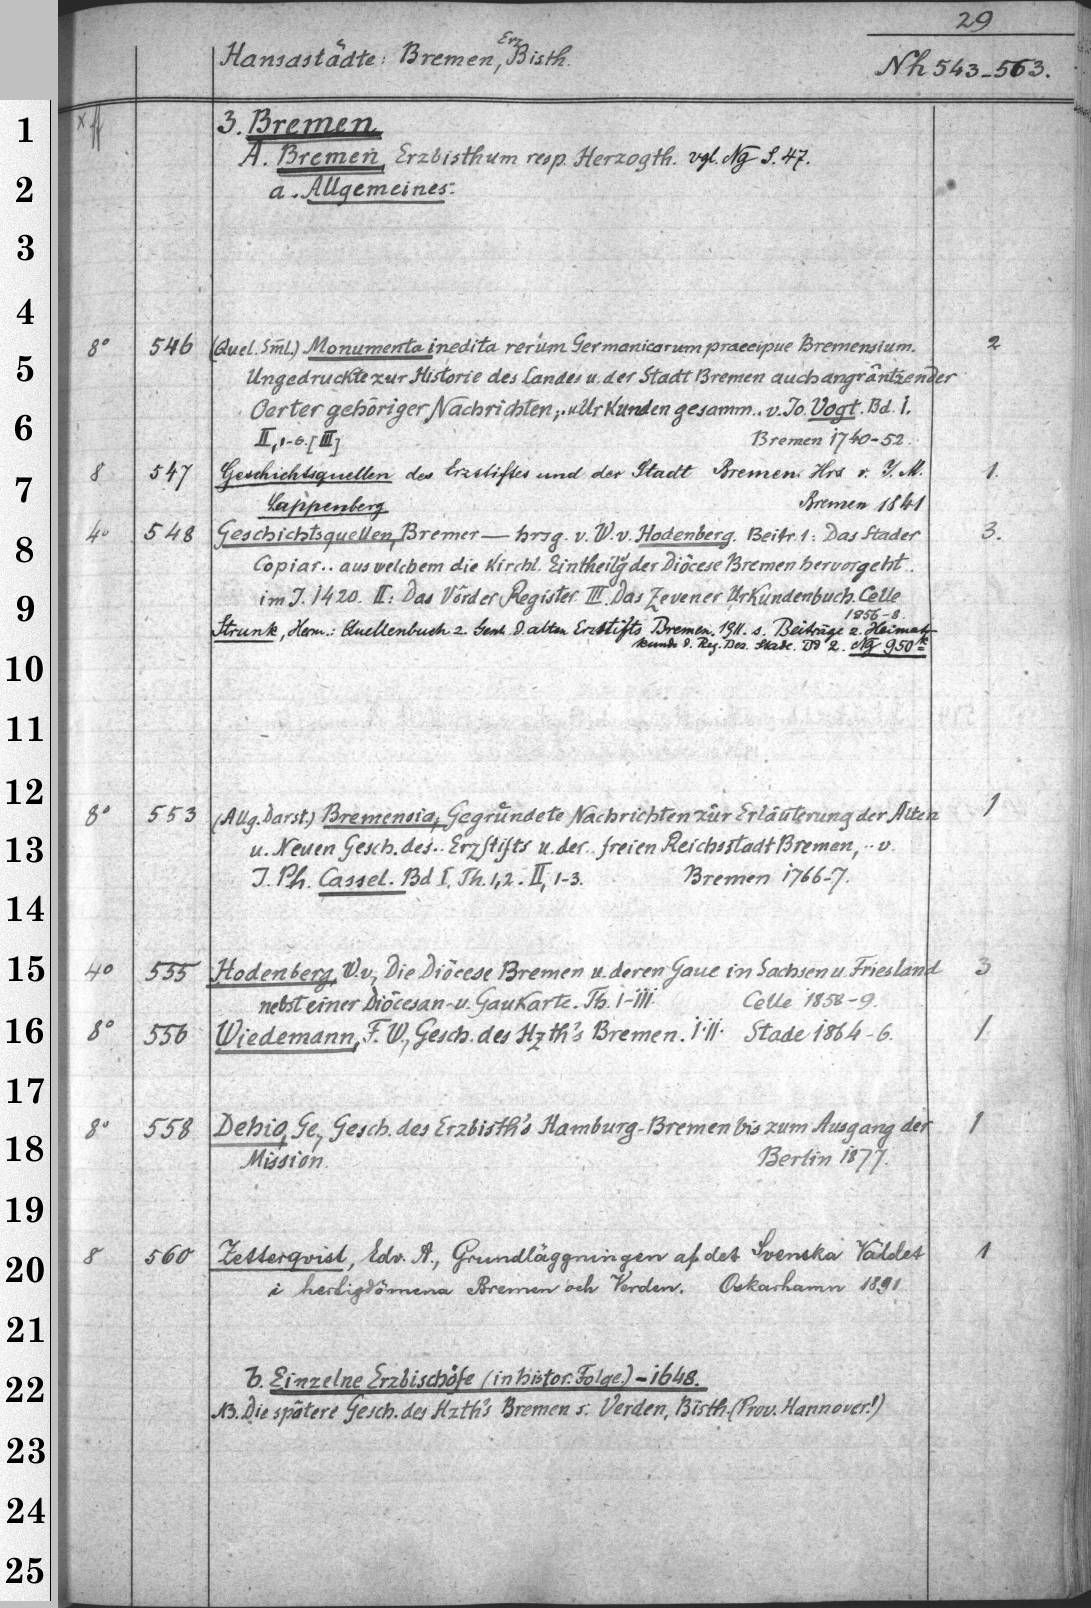 29
Hansastädte: Bremen, Erz Bisth.
Nh 543-563.
3. Bremen
A. Bremen, Erzbisthum resp. Herzogth. vgl. Ng S. 47.
a. Allgemeines.
8° 546 (Quel. Sml.) Monumenta inedita rerum Germanicarum praecipue Bremensium. 2
Ungedruckte zur Historie des Landes u. der Stadt Bremen auch angräntzender
Oerter gehöriger Nachrichten, .. Urkunden gesamm. v. Jo. Vogt. Bd. I.
II, 1-6. [III] Bremen 1740-52.
8 547 Geschichtsquellen des Erzstiftes und der Stadt Bremen. Hrs v. J. M. 1.
Lappenberg Bremen 1841
4° 548 Geschichtsquellen, Bremer — hrsg. v. W. v. Hodenberg. Beitr. 1: Das Stader 3.
Copiar .. aus welchem die Kirchl. Eintheilg der Diöcese Bremen hervorgeht ..
im J. 1420. II: Das Vörder Register. III. Das Zevener Urkundenbuch. Celle
1856-8.
Strunk, Herm.: Quellenbuch z. Gesch. d. alten Erzstifts Bremen. 1911. s. Beiträge z. Heimat-
kunde d. Reg. Bez. Stade. Bd 2. Ng 950k
8° 553 (Allg. Darst.) Bremensia, Gegründete Nachrichten zur Erläuterung der Alten 1
u. Neuen Gesch. des .. Erzstifts u. der freien Reichsstadt Bremen, .. v.
J. Ph. Cassel. Bd I, Th. 1, 2. II, 1-3. Bremen 1766-7.
4° 555 Hodenberg, W. v., Die Diöcese Bremen u. deren Gaue in Sachsen u. Friesland 3
nebst einer Diöcesan- u. Gaukarte. Th. I-III Celle 1858-9.
8° 556 Wiedemann, F. W., Gesch. des Hzth's Bremen. I. II. Stade 1864-6. 1
8° 558 Dehio, Ge., Gesch. des Erzbisth's Hamburg-Bremen bis zum Ausgang der 1
Mission. Berlin 1877.
8 560 Zetterqvist, Edv. A., Grundläggningen af det Svenska Väldet 1
i hertigdömena Bremen och Verden. Oskarhamn 1891
b. Einzelne Erzbischöfe (in histor. Folge.) - 1648.
NB. Die spätere Gesch. des Hzth's Bremen s. Verden, Bisth. (Prov. Hannover!)
1
2
3
4
5
6
7
8
9
10
11
12
13
14
15
16
17
18
19
20
21
22
23
24
25